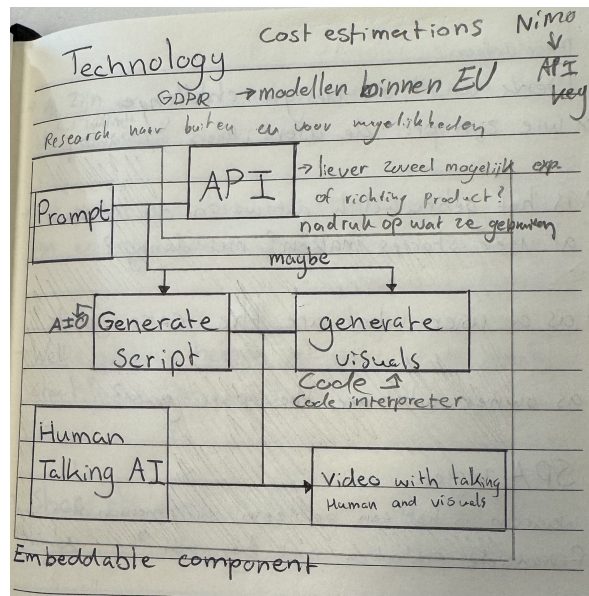 Cost estimations
Nimo
API
key
Technology
GDPR → modellen binnen EU
Research naar buiten en voor mogelijkheden
Prompt
API
→ liever zoveel mogelijk exp.
of richting product?
nadruk op wat ze gebruiken
maybe
Generate
Script
generate
visuals
Code
Code interpreter
Human
Talking AI
Video with talking
Human and visuals
Embeddable component